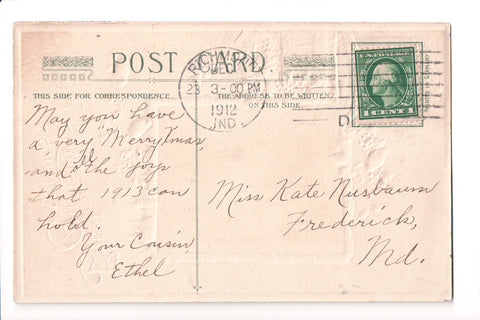 POST CARD
THIS SIDE FOR CORRESPONDENCE.
THE ADDRESS TO BE WRITTEN
ON THIS SIDE
RICHMOND
DEC
23 3-00 PM
1912
IND.
U.S. POSTAGE
1 CENT 1
May you have
a very "Merry Xmas"
and all the joys
that 1913 can
hold.
Your Cousin
Ethel
Miss Kate Nusbaum
Frederick,
Md.